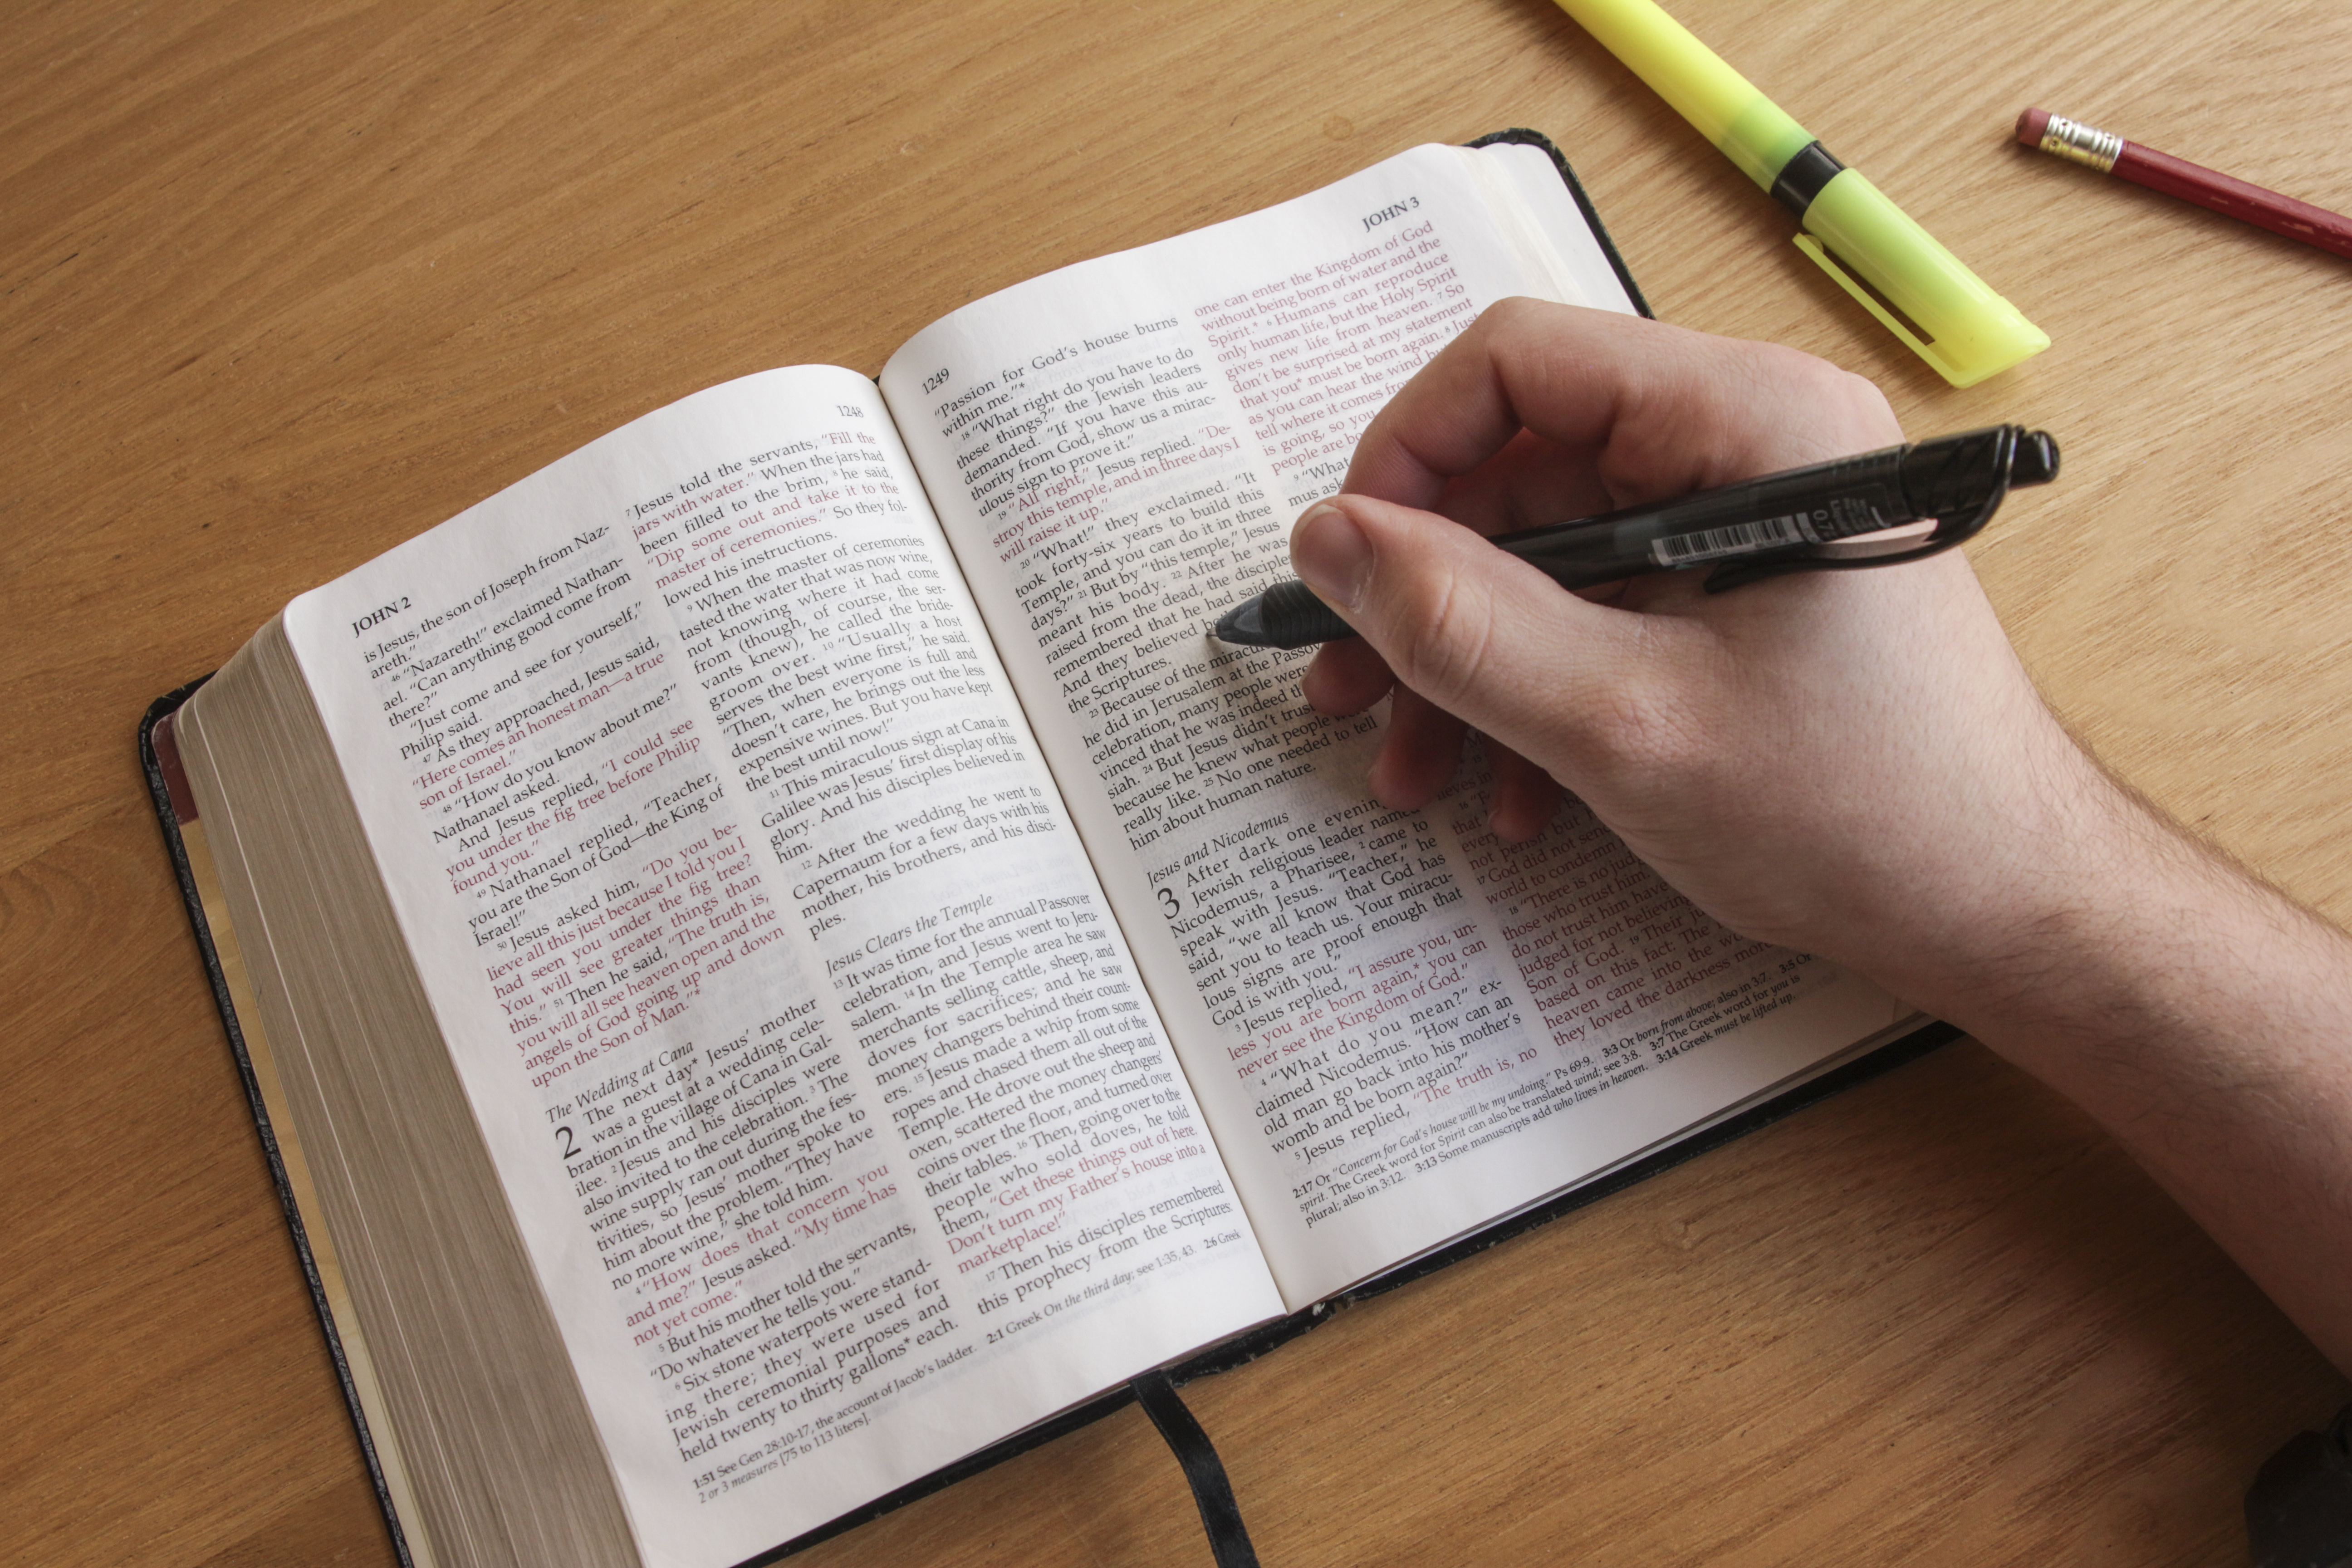 JOHN 2
1248
is Jesus, the son of Joseph from Naz-
areth."
46 "Nazareth!" exclaimed Nathan-
ael. "Can anything good come from
there?"
"Just come and see for yourself,"
Philip said.
47 As they approached, Jesus said,
"Here comes an honest man—a true
son of Israel."
48 "How do you know about me?"
Nathanael asked.
And Jesus replied, "I could see
you under the fig tree before Philip
found you."
49 Nathanael replied, "Teacher,
you are the Son of God—the King of
Israel!"
50 Jesus asked him, "Do you be-
lieve all this just because I told you I
had seen you under the fig tree?
You will see greater things than
this." 51 Then he said, "The truth is,
you will all see heaven open and the
angels of God going up and down
upon the Son of Man."*
The Wedding at Cana
2 The next day* Jesus' mother
was a guest at a wedding cele-
bration in the village of Cana in Gal-
ilee. 2 Jesus and his disciples were
also invited to the celebration. 3 The
wine supply ran out during the fes-
tivities, so Jesus' mother spoke to
him about the problem. "They have
no more wine," she told him.
4 "How does that concern you
and me?" Jesus asked. "My time has
not yet come."
5 But his mother told the servants,
"Do whatever he tells you."
6 Six stone waterpots were stand-
ing there; they were used for
Jewish ceremonial purposes and
held twenty to thirty gallons* each.
7 Jesus told the servants, "Fill the
jars with water." When the jars had
been filled to the brim, 8 he said,
"Dip some out and take it to the
master of ceremonies." So they fol-
lowed his instructions.
9 When the master of ceremonies
tasted the water that was now wine,
not knowing where it had come
from (though, of course, the ser-
vants knew), he called the bride-
groom over. 10 "Usually a host
serves the best wine first," he said.
"Then, when everyone is full and
doesn't care, he brings out the less
expensive wines. But you have kept
the best until now!"
11 This miraculous sign at Cana in
Galilee was Jesus' first display of his
glory. And his disciples believed in
him.
12 After the wedding he went to
Capernaum for a few days with his
mother, his brothers, and his disci-
ples.
Jesus Clears the Temple
13 It was time for the annual Passover
celebration, and Jesus went to Jeru-
salem. 14 In the Temple area he saw
merchants selling cattle, sheep, and
doves for sacrifices; and he saw
money changers behind their count-
ers. 15 Jesus made a whip from some
ropes and chased them all out of the
Temple. He drove out the sheep and
oxen, scattered the money changers'
coins over the floor, and turned over
their tables. 16 Then, going over to the
people who sold doves, he told
them, "Get these things out of here.
Don't turn my Father's house into a
marketplace!"
17 Then his disciples remembered
this prophecy from the Scriptures:
1:51 See Gen 28:10-17, the account of Jacob's ladder. 2:1 Greek On the third day; see 1:35, 43. 2:6 Greek
2 or 3 measures [75 to 113 liters].
1249
JOHN 3
"Passion for God's house burns
within me."*
18 "What right do you have to do
these things?" the Jewish leaders
demanded. "If you have this au-
thority from God, show us a mirac-
ulous sign to prove it."
19 "All right," Jesus replied. "De-
stroy this temple, and in three days I
will raise it up."
20 "What!" they exclaimed. "It
took forty-six years to build this
Temple, and you can do it in three
days?" 21 But by "this temple," Jesus
meant his body. 22 After he was
raised from the dead, the disciples
remembered that he had said this.
And they believed
the Scriptures.
23 Because of the miraculous
he did in Jerusalem at the Passover
celebration, many people were
vinced that he was indeed
siah. 24 But Jesus didn't trust
because he knew what people
really like. 25 No one needed to tell
him about human nature.
Jesus and Nicodemus
3 After dark one evening
Jewish religious leader named
Nicodemus, a Pharisee, 2 came to
speak with Jesus. "Teacher," he
said, "we all know that God has
sent you to teach us. Your miracu-
lous signs are proof enough that
God is with you."
3 Jesus replied, "I assure you, un-
less you are born again,* you can
never see the Kingdom of God."
4 "What do you mean?" ex-
claimed Nicodemus. "How can an
old man go back into his mother's
womb and be born again?"
5 Jesus replied, "The truth is, no
one can enter the Kingdom of God
without being born of water and the
Spirit.* 6 Humans can reproduce
only human life, but the Holy Spirit
gives new life from heaven. 7 So
don't be surprised at my statement
that you* must be born again. 8 Just
as you can hear the wind
tell where it comes
is going, so you
people are
9 "What
mus
that
every
not perish but
17 God did not send
world to condemn
18 "There is no
those who trust him.
do not trust him have
judged for not believing
Son of God. 19 Their
based on this fact: The
heaven came into the
they loved the darkness more
2:17 Or "Concern for God's house will be my undoing." Ps 69:9. 3:3 Or born from above; also in 3:7. 3:5 Or
spirit. The Greek word for Spirit can also be translated wind; see 3:8. 3:7 The Greek word for you is
plural; also in 3:12. 3:13 Some manuscripts add who lives in heaven. 3:14 Greek must be lifted up.
0.7